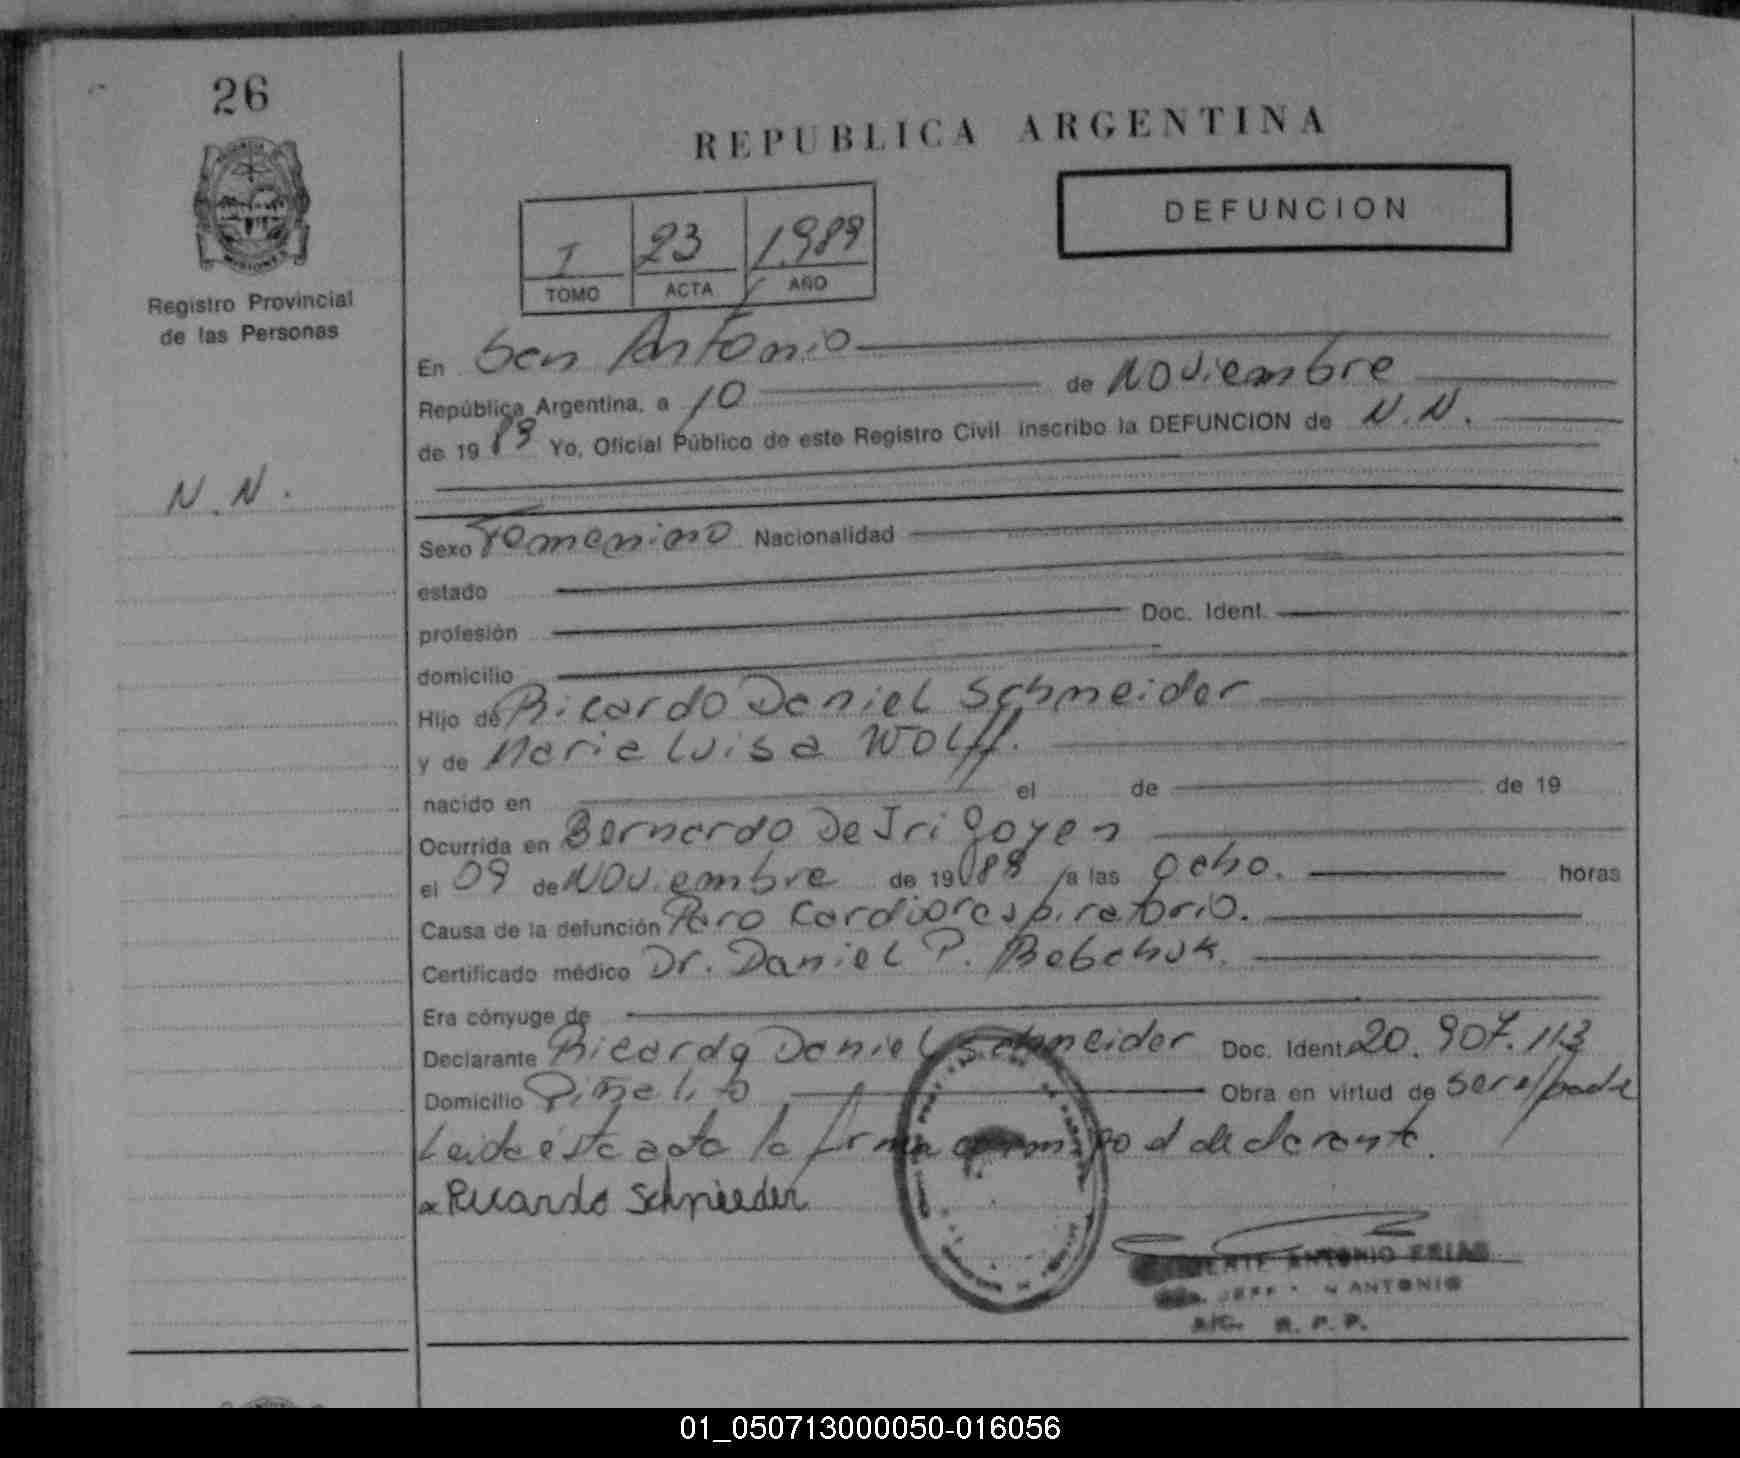 26
REPUBLICA ARGENTINA
DEFUNCION
I 23 1989
TOMO ACTA AÑO
MISIONES
Registro Provincial
de las Personas
En San Antonio
República Argentina, a 10 de Noviembre
de 1989 Yo, Oficial Público de este Registro Civil inscribo la DEFUNCION de N.N.
N.N.
Sexo Femenino Nacionalidad
estado
profesión Doc. Ident.
domicilio
Hijo de Ricardo Daniel Schneider
y de Maria Luisa Wolff.
nacido en el de de 19
Ocurrida en Bernardo De Irigoyen
el 09 de Noviembre de 1989 a las ocho. horas
Causa de la defunción Paro Cardiorespiratorio.
Certificado médico Dr. Daniel P. Babchuk.
Era cónyuge de
Declarante Ricardo Daniel Schneider Doc. Ident. 20.907.113
Domicilio Piñalito Obra en virtud de ser el padre
Leida ésta acta la firma conmigo el declarante.
Ricardo Schneider
ANTONIO FRIAS
JEFE ANTONIO
R. P. P.
01_050713000050-016056